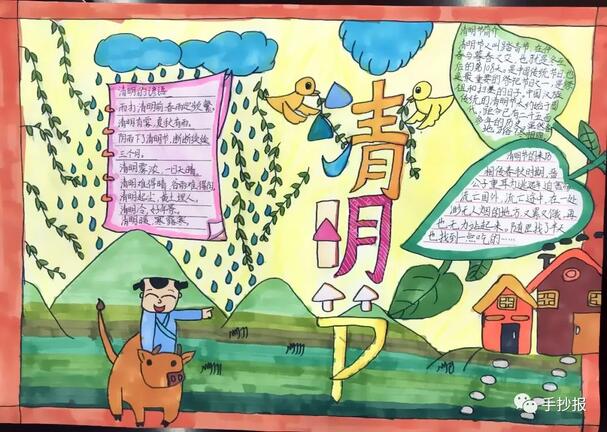 清明的谚语
雨打清明前,春雨定频繁。
清明有雾,夏秋有雨。
阴雨下了清明节,断断续续
三个月。
清明雾浓,一日天晴。
清明难得晴 谷雨难得阴
清明起尘,黄土埋人。
清明冷,好年景。
清明暖,寒露寒。
清明节
清明节简介
清明节又叫踏青节,在仲
春与暮春之交,也就是冬至
后的第108天,是中国传统节日,也
是最重要的祭祀节日之一,是祭
祖和扫墓的日子。中国汉族
传统的清明节大约始于周
代,距今已有二千五百
多年的历史
清明节的来历
相传春秋时期,晋
公子重耳为逃避迫害而
流亡国外,流亡途中,在一处
渺无人烟的地方又累又饿,再
也无力站起来。随臣找了半天
也找到一点吃的……
手抄报